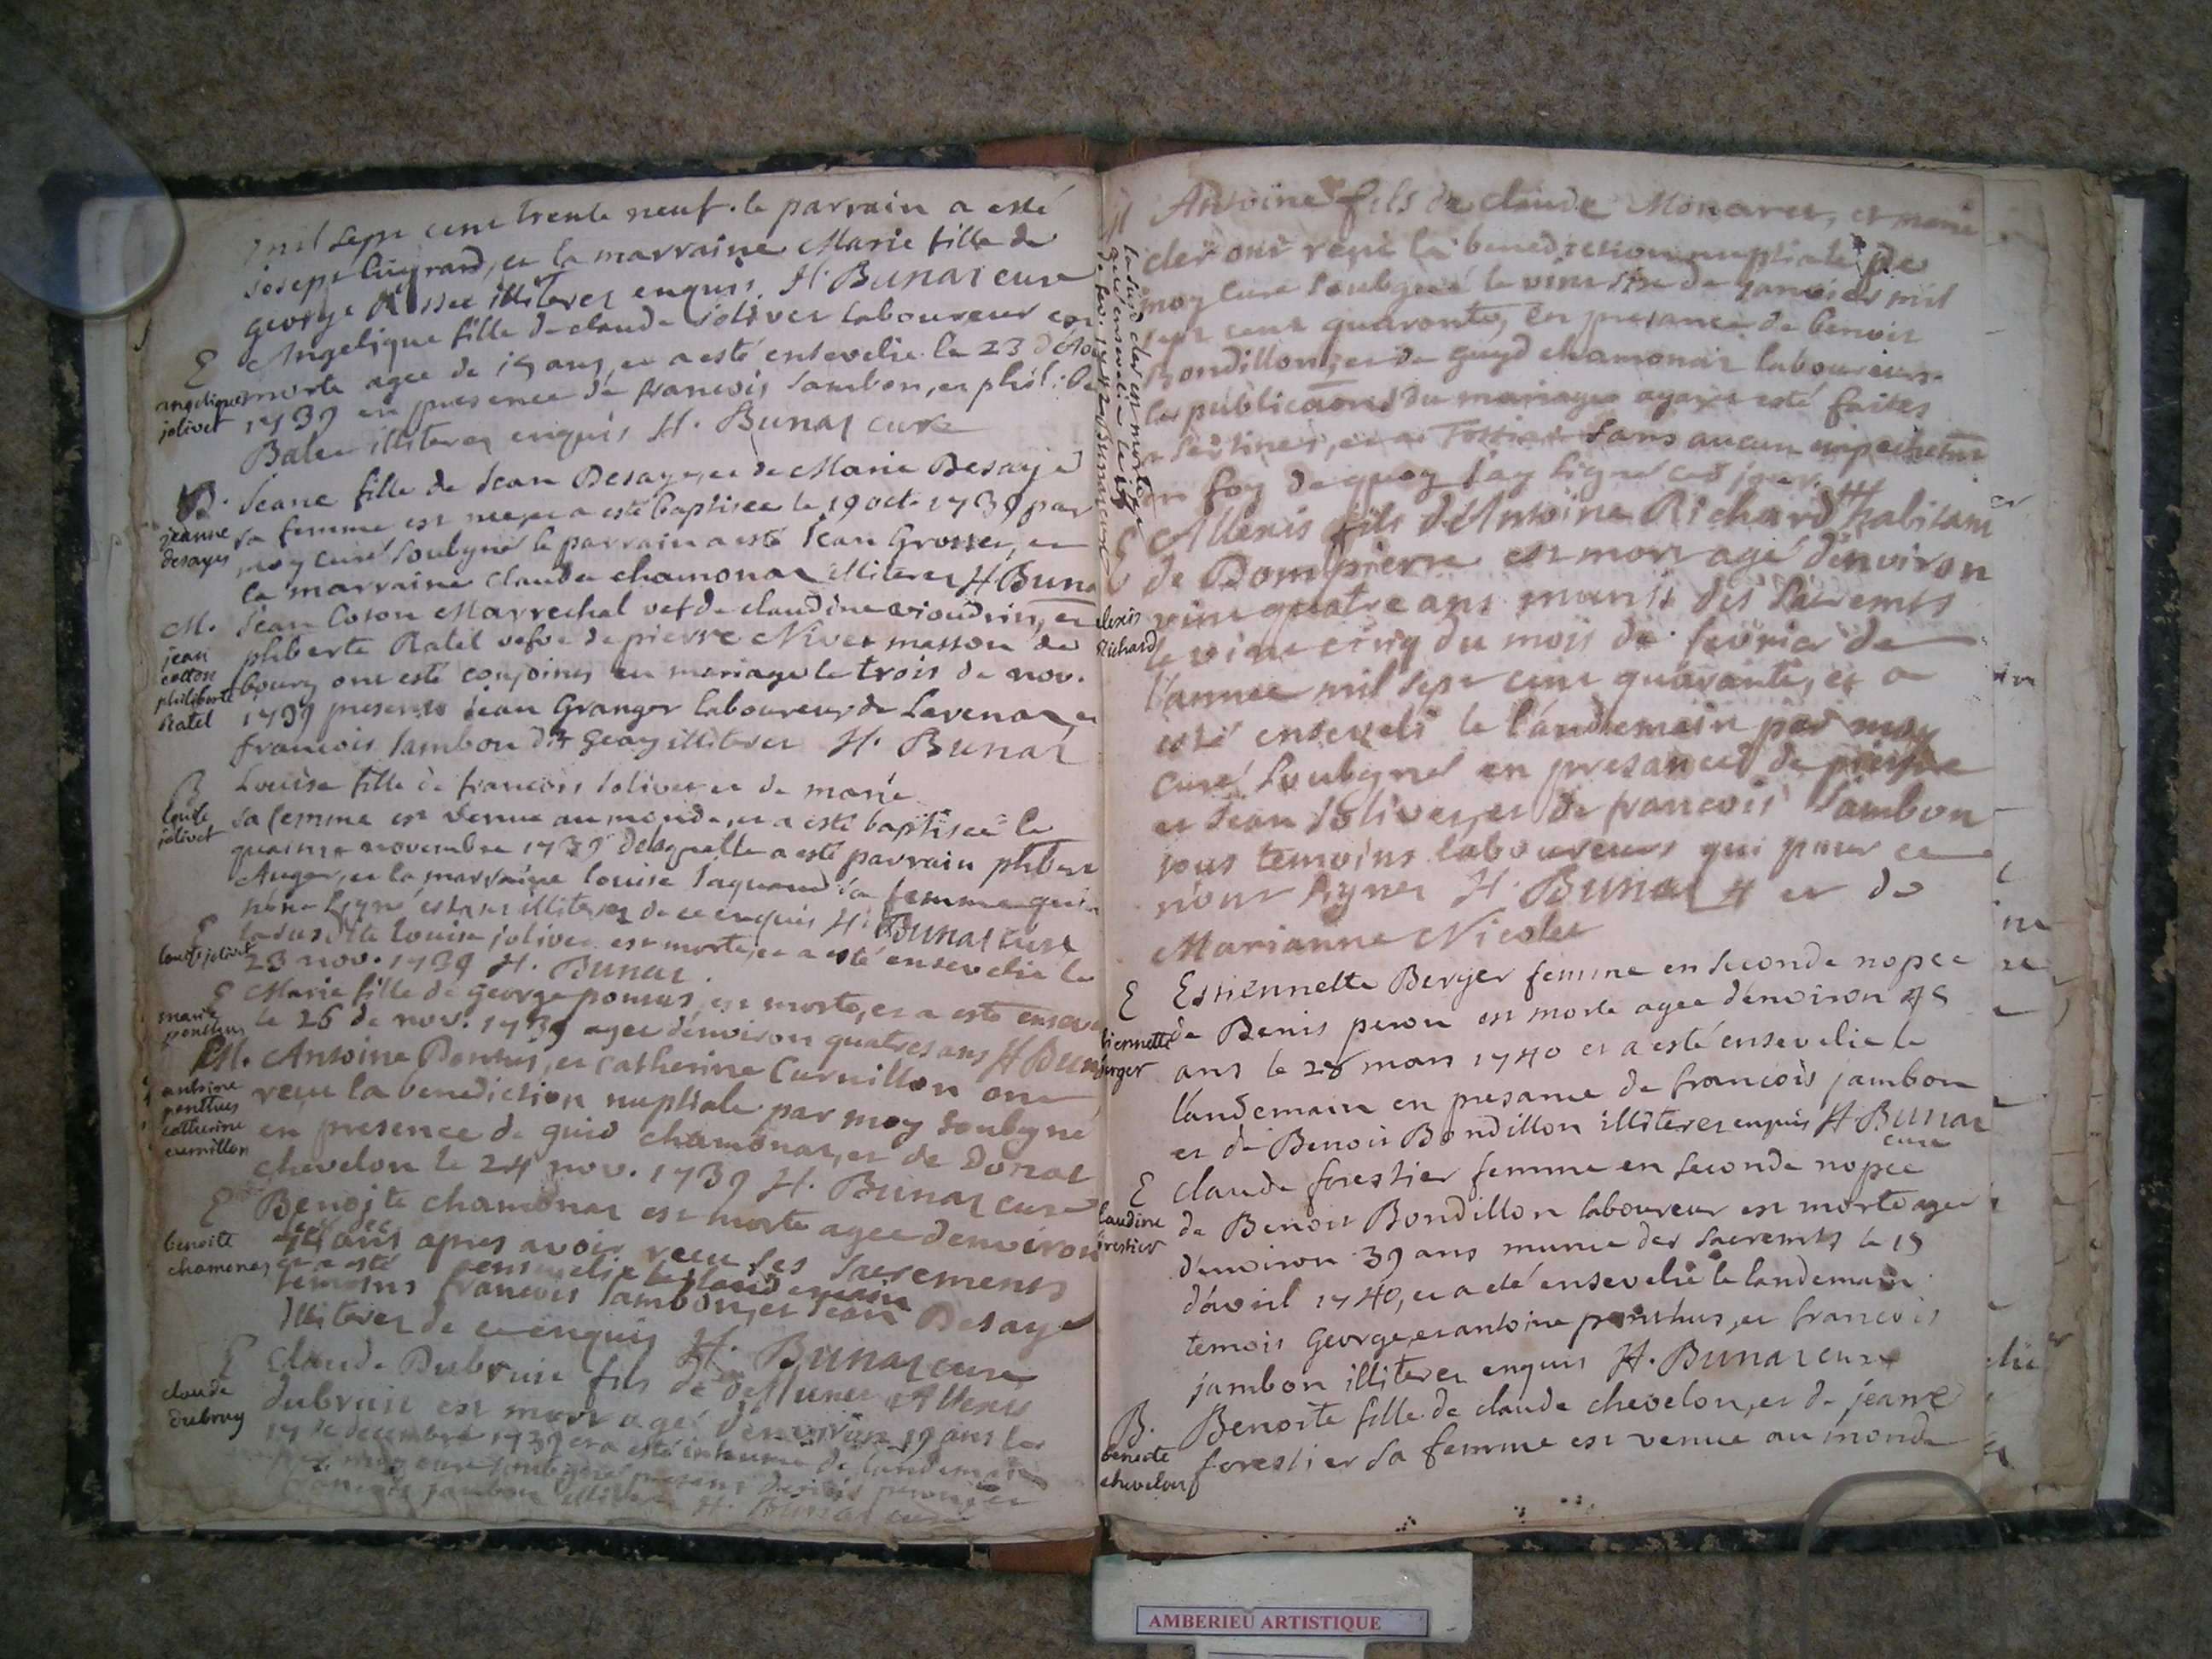 mil sept cent trente neuf. le parrain a esté
joseph Guyrand, et la marraine Marie fille de
george Rosset illiterez enquis. H. Bunaz curé
E
angelique
jolivet
Angelique fille de claude jolivet laboureur est
morte agee de 15 ans, et a esté ensevelie le 23 d'
1739 en presence de francois Jambon, et
illiterez enquis H. Bunaz curé
B.
jeanne
desayes
Jeane fille de Jean Desaye, et de Marie Desaye
sa femme est nee, et a esté baptisee le 19 oct. 1739 par
moy curé soubgné le parrain a esté Jean Grosset, et
la marraine Claude chamonaz illiterez H Buna
M.
jean
cotton
philiberte
Ratel
Jean Coton Marrechal vef de claudine et
phberte Ratel vefve de pierre Nivet masson de
bourg ont esté conjoints en mariage le trois de nov.
1739 presents Jean Granger laboureur de Lavenaz et
francois Jambon dit Geay illiterez H. Bunaz
B
louise
jolivet
Louise fille de francois Jolivet et de marie
sa femme est venue au monde, et a esté baptisee le
novembre 1739 delaquelle a esté parrain phbert
Auger, et la marraine louise Jaquand sa femme qui
n'ont signé estant illiterez de ce enquis H. Bunaz curé
E
louise jolivet
la susdite louise jolivet est morte, et a esté ensevelie le
23 nov. 1739 H. Bunaz.
E
marie
ponthus
Marie fille de george pontus, est morte, et a esté ensev
le 26 de nov. 1739 agee d'environ quatres ans H Bun
M.
antoine
ponthus
catherine
curnillon
Antoine Pontus, et catherine Curnillon ont
receu la benediction nuptiale par moy soubgné
en presence de guid chamonaz, et de Donat
chevelon le 24 nov. 1739 H. Bunaz curé
E
benoite
chamonaz
Benoite chamonaz est morte agee denviron
ans apres avoir receu les sacrements
et a esté ensevelie le landemain
temoins francois Jambon, et Jean Desaye
illiterez de ce enquis H. Bunaz curé
E
claude
dubruy
Claude Dubruit fils de deffunct Allexis
dubruit est mort agé d'environ 19 ans le
17 de decembre 1739 et a esté inhumé le landemain
par moy curé soubgné present denis peron, et
francois jambon illiterez H. Bunaz curé
la susd. cler est morte
et a été ensevelie le 17
de fev. 1742 H Bunaz curé
Antoine fils de claude Monaret, et marie
cler ont reçu la benediction nuptiale de
moy curé soubgné le vint six de janvier mil
sept cent quarante, en presance de benoit
Bondillon, et de guyd chamonaz laboureurs
les publications du mariage ayant esté faites
sans aucun empechement
en foy de quoy j'ay signé ces jour.
E
alexis
Richard
Allexis fils d'Antoine Richard habitant
de Dompierre est mort agé d'environ
vint quatre ans munis des sacremts
le vint cinq du mois de fevrier de
l'annee mil sept cent quarante, et a
esté enseveli le l'andemain par moy
curé soubgné en presances de pierre
et Jean Jolivet, et de francois Jambon
tous temoins laboureurs qui pour ce
n'ont signer H. Bunaz # et de
Marianne Nicolet
E
tiennette
berger
Estiennette Berger femme en seconde nopce
de Denis peron est morte agee d'environ 45
ans le 28 mars 1740 et a esté ensevelie le
l'andemain en presance de francois jambon
et de Benoit Bondillon illiterez enquis H Bunaz
curé
E
claudine
forestier
claude forestier femme en seconde nopce
de Benoit Bondillon laboureur est morte agee
d'environ 39 ans munie des sacremts le 15
d'avril 1740, et a eté ensevelie le landemain
temois George, et antoine ponthus, et francois
jambon illiterez enquis H. Bunaz curé
B.
benoite
chevelon
Benoite fille de claude chevelon, et de jeanne
forestier sa femme est venue au monde
AMBERIEU ARTISTIQUE